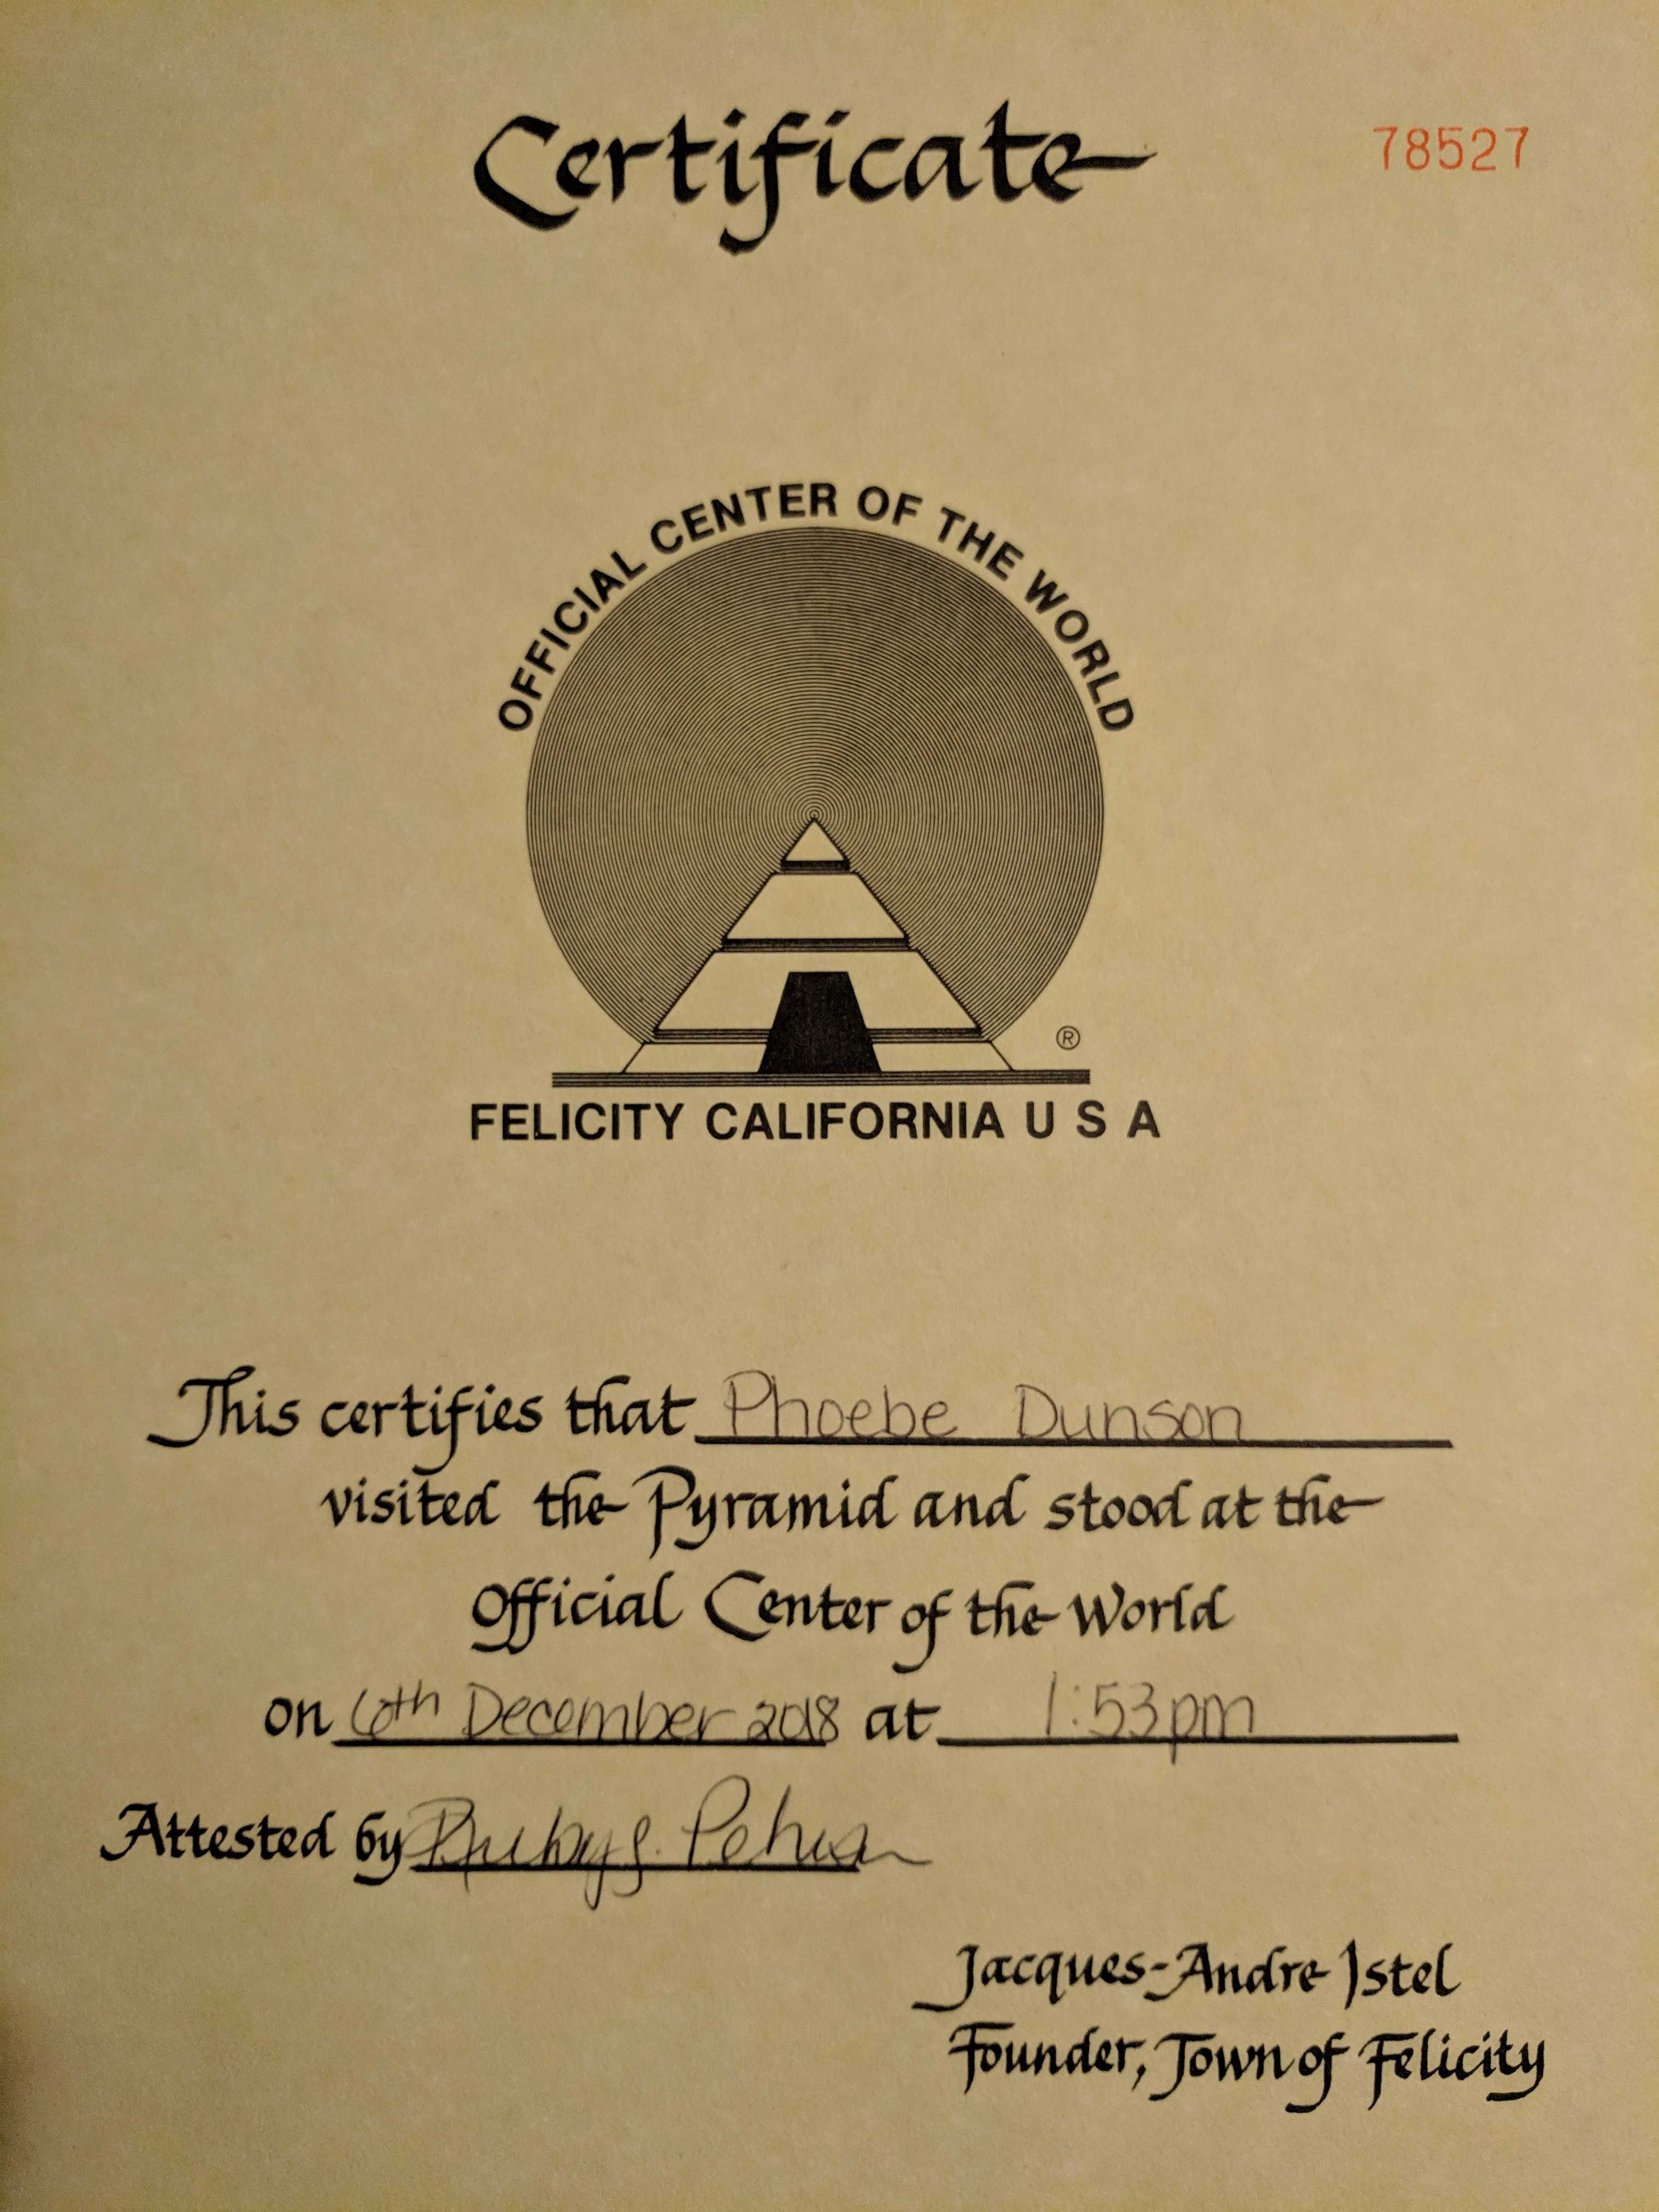 Certificate
78527
OFFICIAL CENTER OF THE WORLD
®
FELICITY CALIFORNIA U S A
This certifies that Phoebe Dunson
visited the Pyramid and stood at the
Official Center of the World
on 6th December 2018 at 1:53pm
Attested by Ruby J.
Jacques-Andre Istel
Founder, Town of Felicity